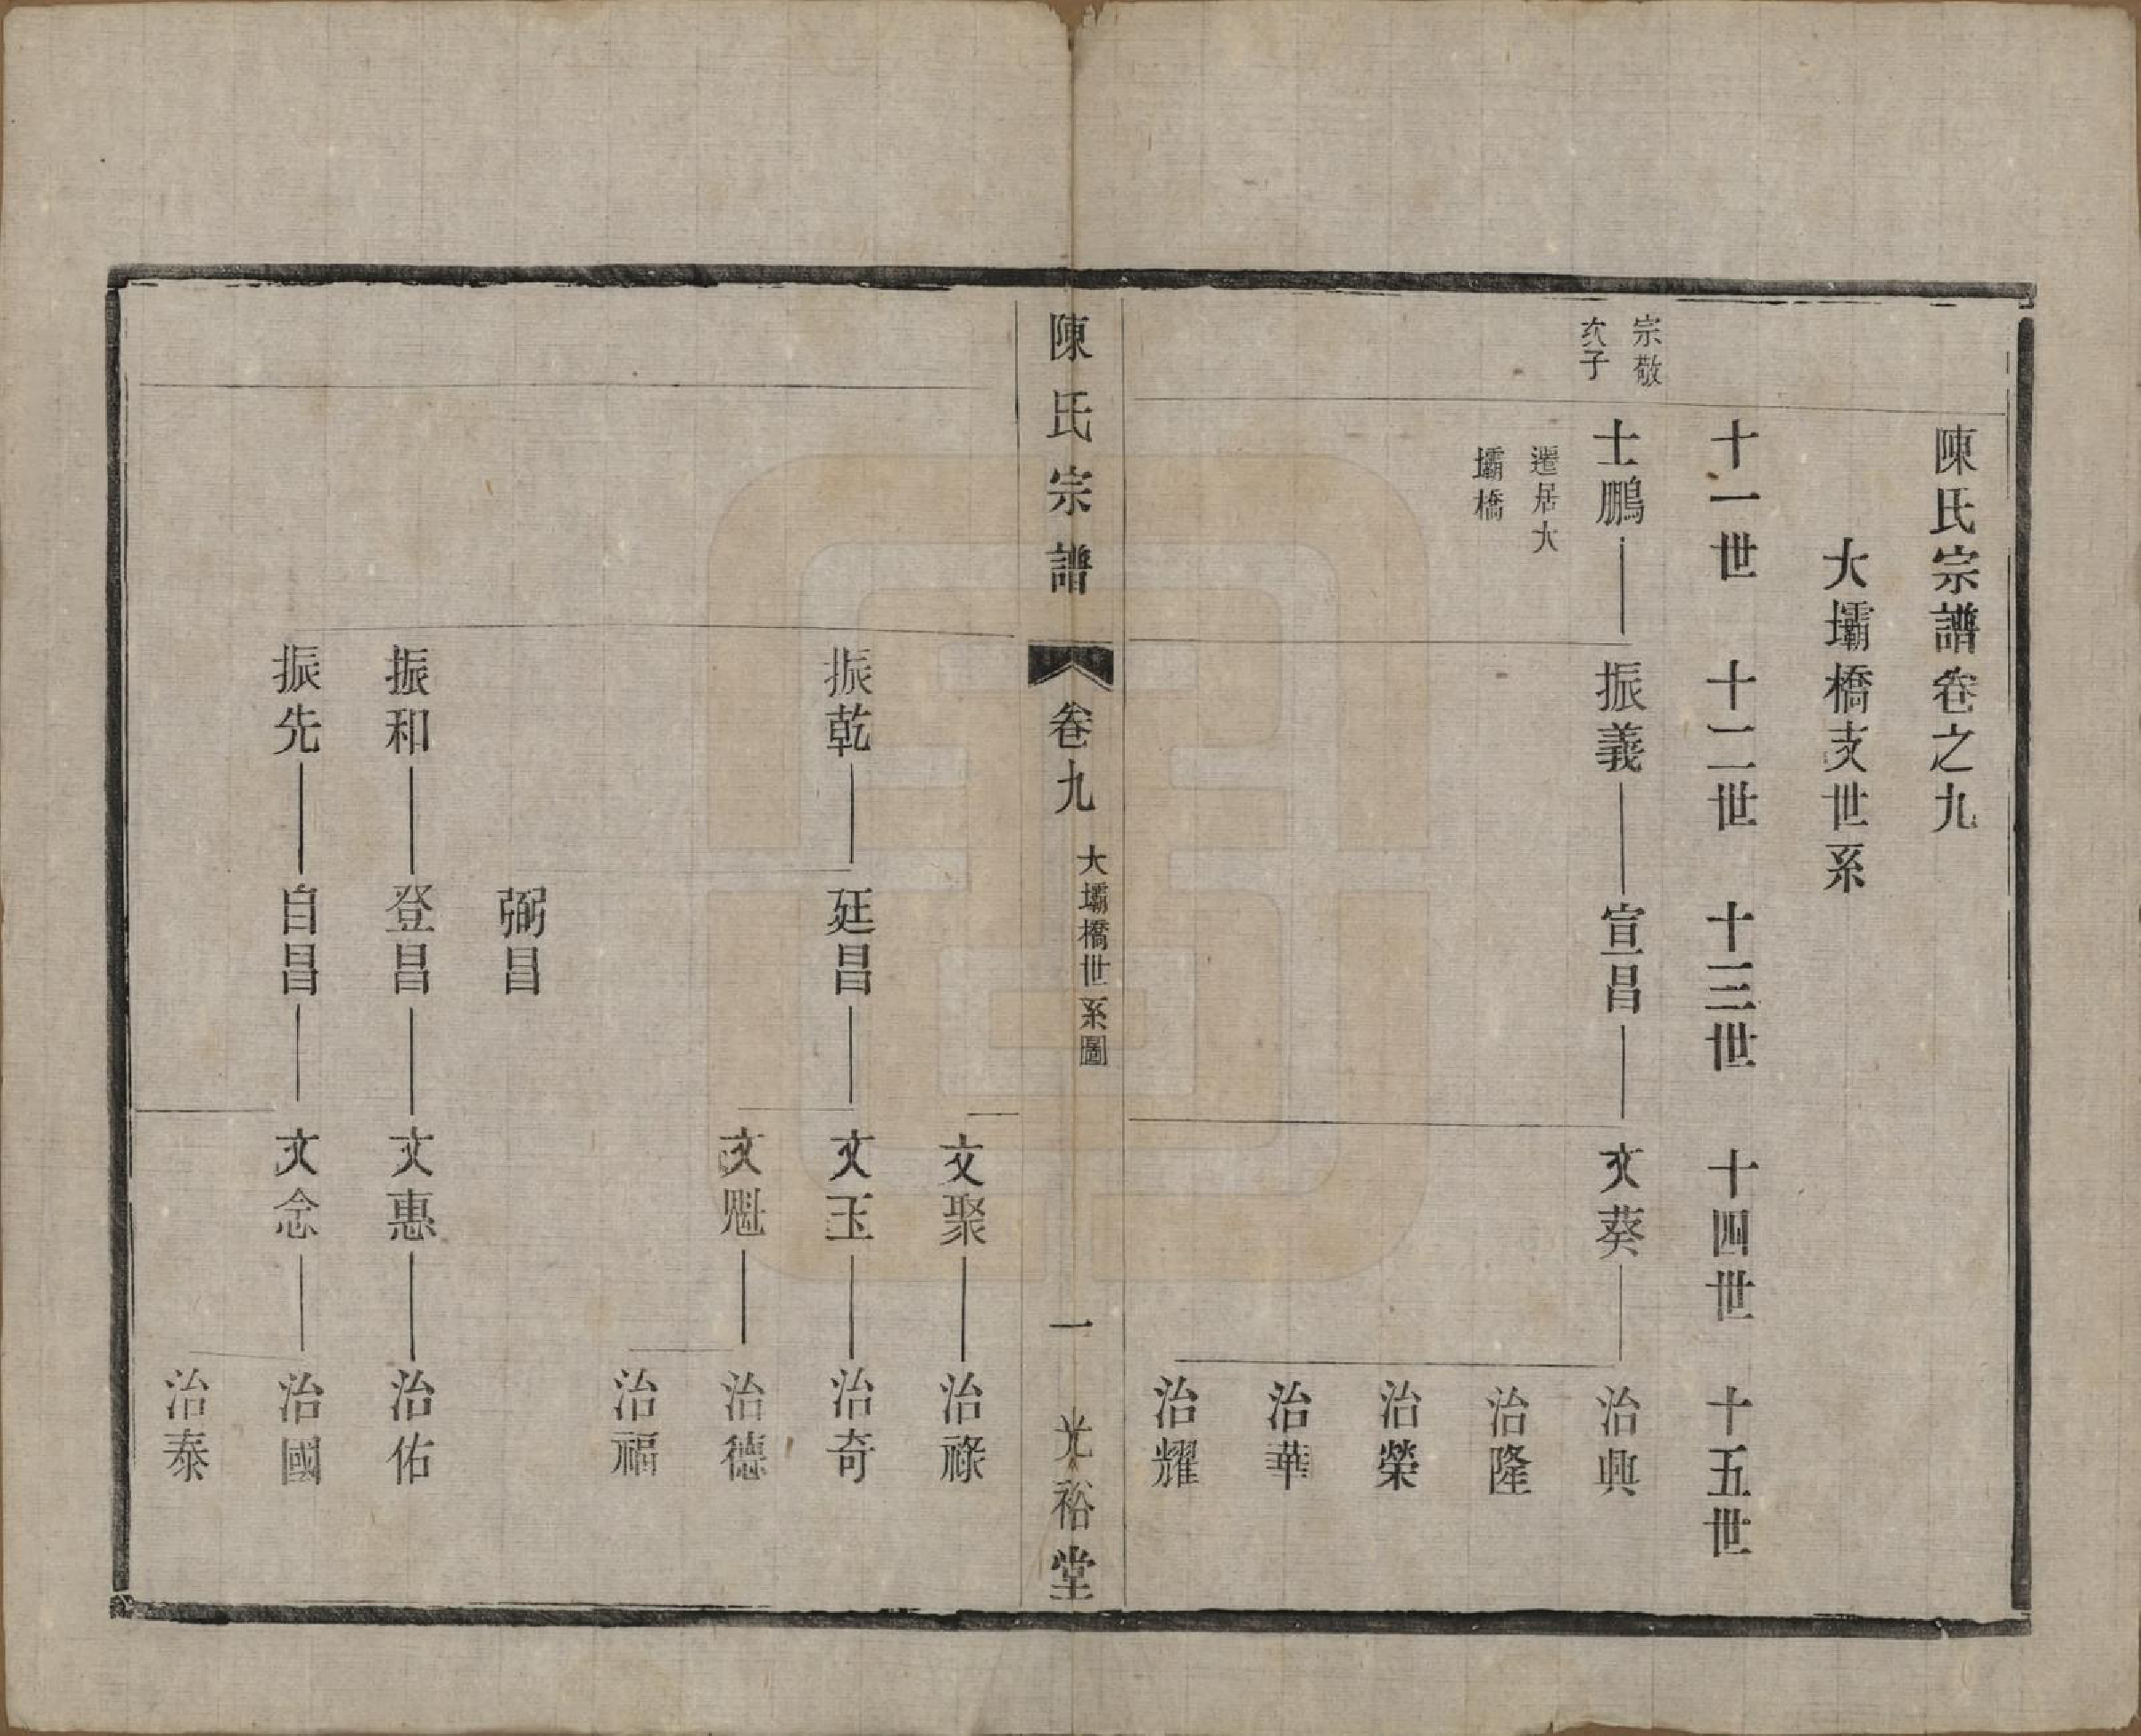 陳氏宗譜卷之九
大壩橋支世系
十一世 十二世 十三世 十四世 十五世
宗敬
次子
士鵬 振義 宣昌 文葵 治興
遷居大
壩橋
治隆
治榮
治華
治耀
陳氏宗譜 卷九 大壩橋世系圖 一 光裕堂
文聚 治祿
振乾 廷昌 文玉 治奇
文魁 治德
治福
弼昌
振和 登昌 文惠 治佑
振先 自昌 文念 治國
治泰